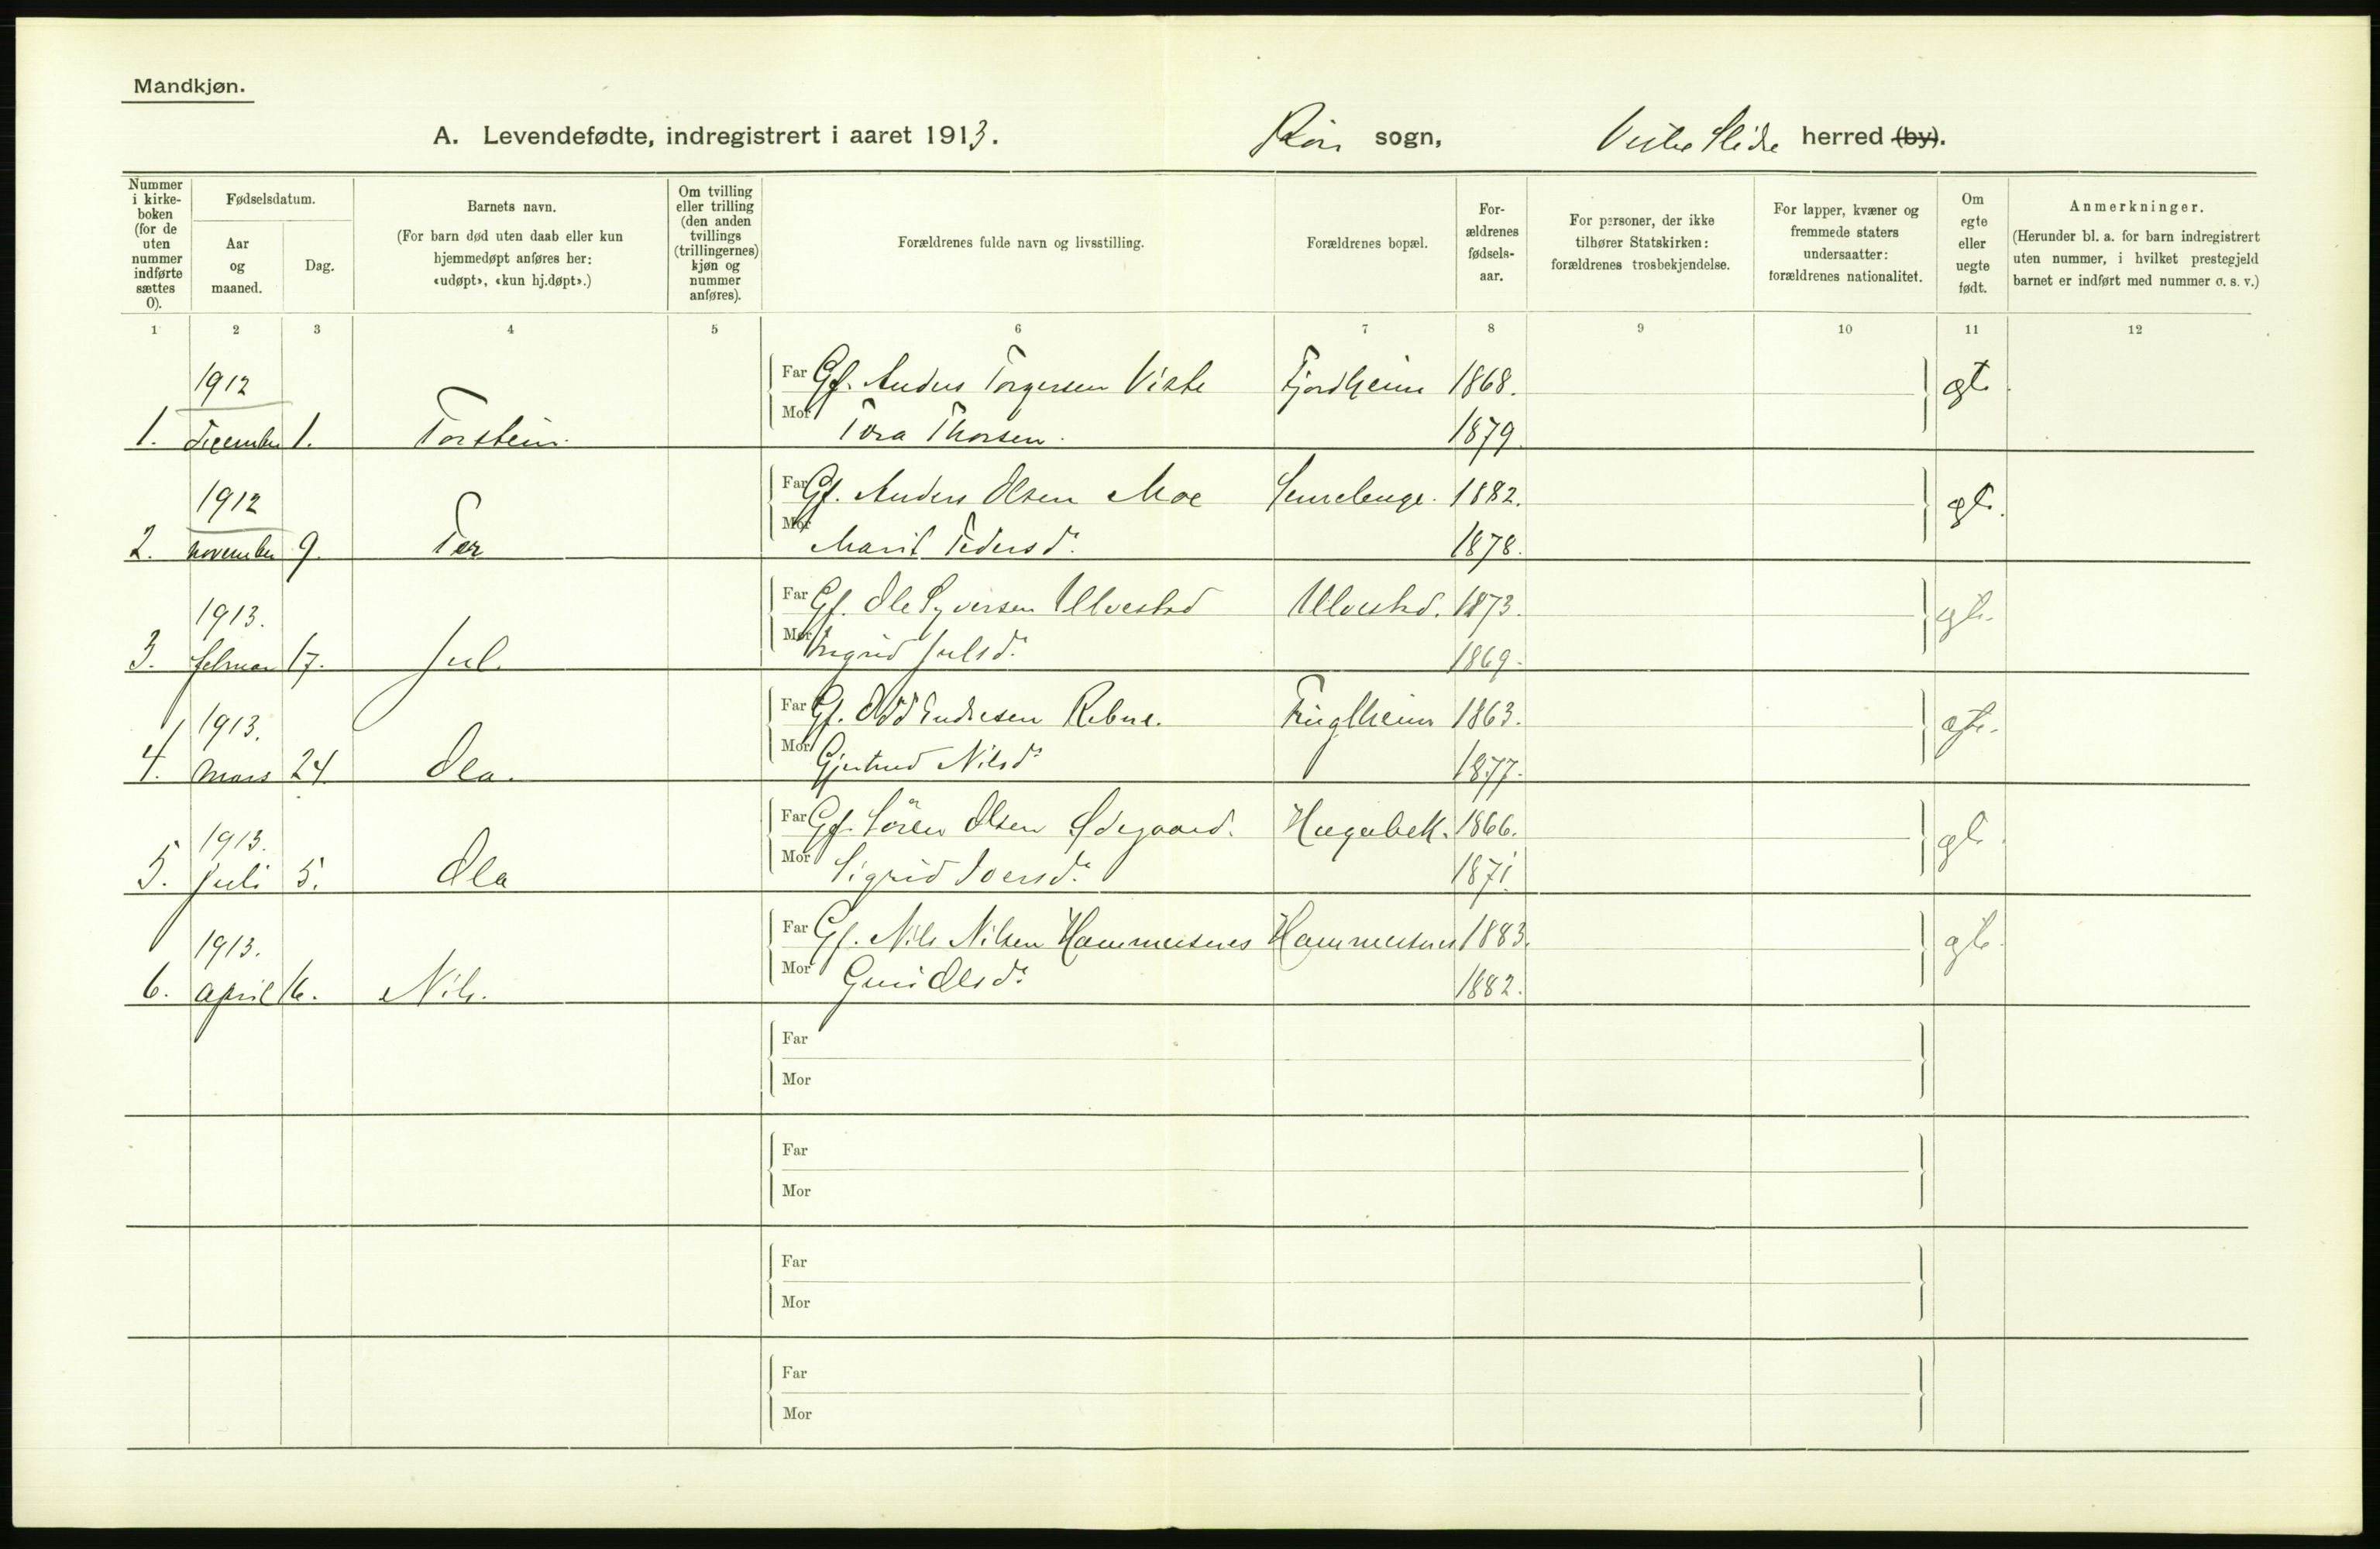 Mandkjøn.
A. Levendefødte, indregistrert i aaret 1913. Røn sogn, Vestre Slidre herred (by).
Nummer i kirkeboken (for de uten nummer indførte sættes 0).
Fødselsdatum.
Aar og maaned.
Dag.
Barnets navn.
(For barn død uten daab eller kun hjemmedøpt anføres her: «udøpt», «kun hj.døpt».)
Om tvilling eller trilling (den anden tvillings (trillingernes) kjøn og nummer anføres).
Forældrenes fulde navn og livsstilling.
Forældrenes bopæl.
Forældrenes fødselsaar.
For personer, der ikke tilhører Statskirken: forældrenes trosbekjendelse.
For lapper, kvæner og fremmede staters undersaatter: forældrenes nationalitet.
Om egte eller uegte født.
Anmerkninger.
(Herunder bl. a. for barn indregistrert uten nummer, i hvilket prestegjeld barnet er indført med nummer o. s. v.)
1 2 3 4 5 6 7 8 9 10 11 12
1912 Far Gf. Anders Torgersen Viste Fjordheim 1868. egte
1. December 1. Torstein. Mor Tora Thorsen. 1879.
1912 Far Gf. Anders Olsen Moe 1882. egte.
2. november 9. Per Mor Marit Pedersdr. 1878.
1913. Far Gf. Ole Syversen Ulvestad Ulvestad. 1873. egte.
3. februar 17. Jul. Mor Ingrid Julsdr. 1869.
1913. Far Gf. Odd Endresen Rebne. Fuglheim 1863. egte.
4. Mars 24. Ola. Mor Gjertrud Nilsdr 1877.
1913. Far Gf. Sören Olsen Ødegaard. Hagabek. 1866. egte.
5. Juli 5. Ola Mor Sigrid Iversdr. 1871.
1913. Far Gf. Nils Nilsen Hammersnes Hammersnes 1883. egte.
6. April 16. Nils. Mor Guri Olsdr. 1882.
Far
Mor
Far
Mor
Far
Mor
Far
Mor